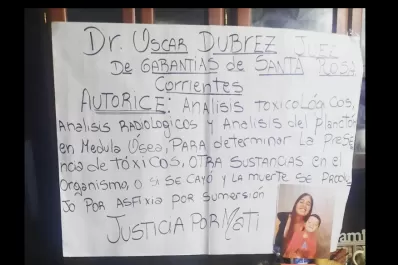 Dr. OSCAR DUBREZ JUEZ
De GARANTIAS de SANTA ROSA
Corrientes
AUTORICE: Analisis toxicológicos,
Analisis RADIOLogicos y Analisis del Plancton
en Medula Ósea, PARA determinar La Prese
ncia de tóxicos, OTRA SUStancias en el
Organismo, o si se cayó y La muerte se Produ
Jo Por Asfixia por sumersión
JUSTICIA POR MATI